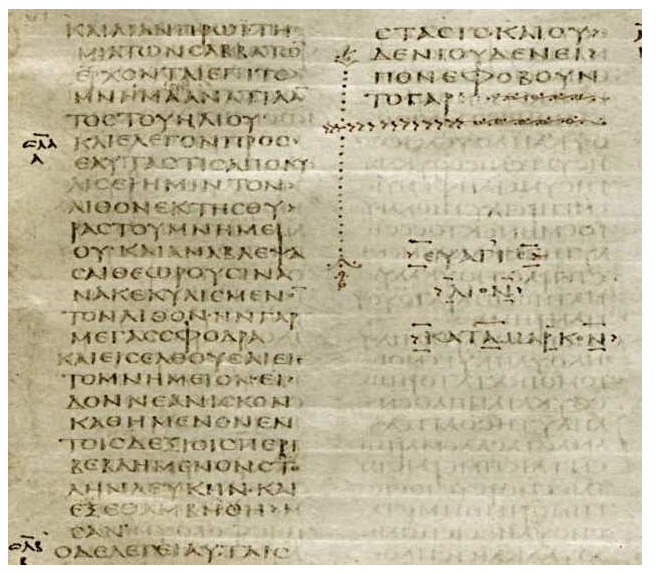 ΚΑΙΛΙΑΝΠΡΩΙΤΗ
ΜΙΑΤΩΝϹΑΒΒΑΤΩ̅
ΕΡΧΟΝΤΑΙΕΠΙΤΟ
ΜΝΗΜΑΑΝΑΤΙΛΑ̅
ΤΟϹΤΟΥΗΛΙΟΥ
ϹΛΑ
Α
ΚΑΙΕΛΕΓΟΝΠΡΟϹ
ΕΑΥΤΑϹΤΙϹΑΠΟΚΥ
ΛΙϹΕΙΗΜΙΝΤΟΝ
ΛΙΘΟΝΕΚΤΗϹΘΥ>
ΡΑϹΤΟΥΜΝΗΜΕΙ
ΟΥΚΑΙΑΝΑΒΛΕΨΑ
ϹΑΙΘΕΩΡΟΥϹΙΝΑ
ΝΑΚΕΚΥΛΙϹΜΕΝ
ΤΟΝΛΙΘΟΝ·ΗΝΓΑΡ
ΜΕΓΑϹϹΦΟΔΡΑ
ΚΑΙΕΙϹΕΛΘΟΥϹΑΙΕΙϹ
ΤΟΜΝΗΜΕΙΟΝ·ΕΙ
ΔΟΝΝΕΑΝΙϹΚΟΝ
ΚΑΘΗΜΕΝΟΝΕΝ
ΤΟΙϹΔΕΞΙΟΙϹΠΕΡΙ
ΒΕΒΛΗΜΕΝΟΝϹΤΟ
ΛΗΝΛΕΥΚΗΝ·ΚΑΙ
ΕΞΕΘΑΜΒΗΘΗ>
ϹΑΝ
ϹΛΒ
Β
ΟΔΕΛΕΓΕΙΑΥΤΑΙϹ
ϹΤΑϹΙϹ·ΚΑΙΟΥ>
ΔΕΝΙΟΥΔΕΝΕΙ>
ΠΟΝΕΦΟΒΟΥΝ
ΤΟΓΑΡ
ΕΥΑΓΓΕ
ΛΙΟΝ
ΚΑΤΑΜΑΡΚΟΝ